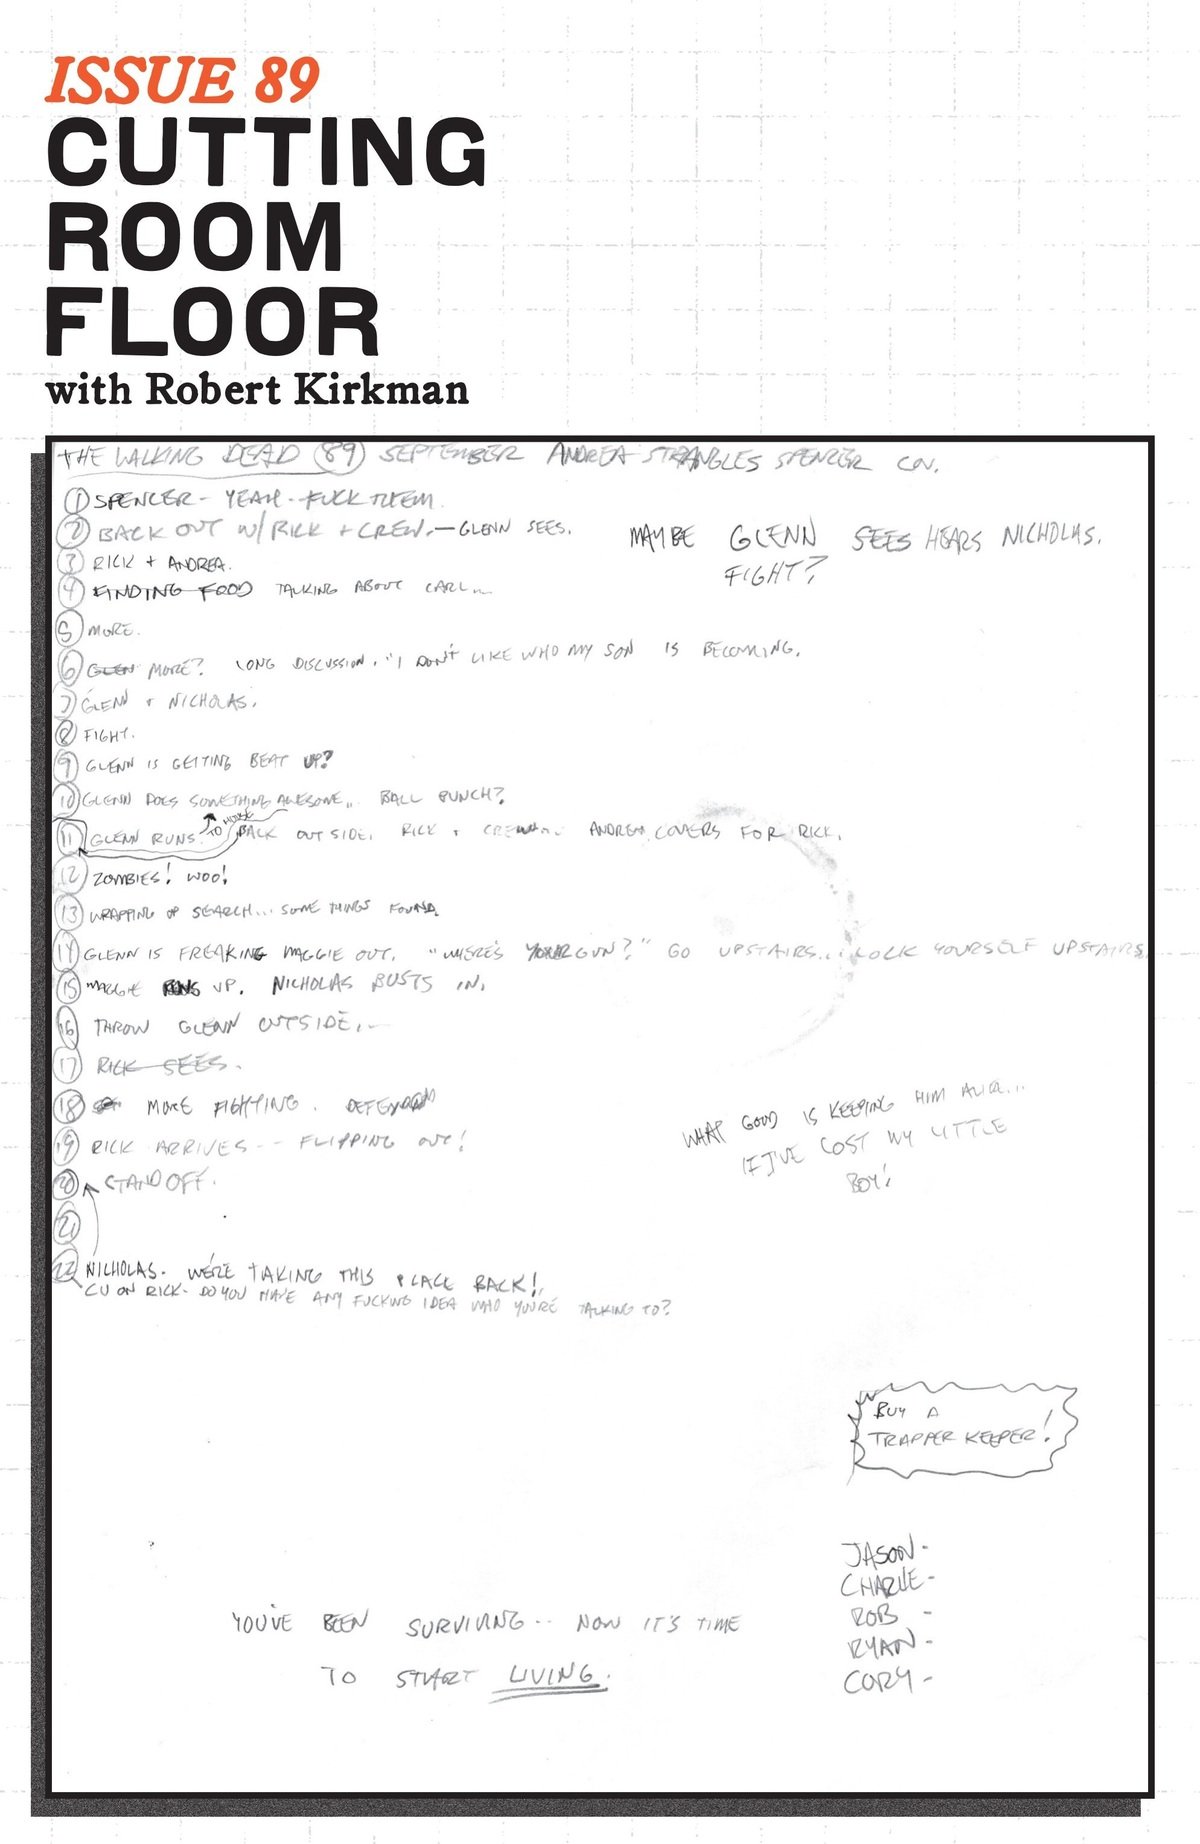 ISSUE 89
CUTTING
ROOM
FLOOR
with Robert Kirkman
THE WALKING DEAD 89 SEPTEMBER ANDREA STRANGLES SPENCER COV.
1 SPENCER- YEAH- FUCK THEM.
2 BACK OUT W/ RICK + CREW.—GLENN SEES.
MAYBE GLENN SEES HEARS NICHOLAS.
FIGHT?
3 RICK + ANDREA.
4 FINDING FOOD TALKING ABOUT CARL...
5 MORE.
6 GLEN MORE? LONG DISCUSSION. "I DON'T LIKE WHO MY SON IS BECOMING.
7 GLENN + NICHOLAS.
8 FIGHT.
9 GLENN IS GETTING BEAT UP?
10 GLENN DOES SOMETHING AWESOME.. BALL PUNCH?
11 GLENN RUNS TO HOUSE BACK OUTSIDE. RICK + CREW... ANDREA COVERS FOR RICK.
12 ZOMBIES! WOO!
13 WRAPPING UP SEARCH... SOME THINGS FOUND.
14 GLENN IS FREAKING MAGGIE OUT. "WHERE'S YOUR GUN?" GO UPSTAIRS... LOCK YOURSELF UPSTAIRS.
15 MAGGIE RUNS UP. NICHOLAS BUSTS IN.
16 THROW GLENN OUTSIDE..
17 RICK SEES.
18 MORE FIGHTING.
19 RICK ARRIVES-- FLIPPING OUT!
WHAT GOOD IS KEEPING HIM ALIVE...
IF I'VE LOST MY LITTLE
BOY!
20 STAND OFF.
21
22 NICHOLAS- WE'RE TAKING THIS PLACE BACK!
CU ON RICK- DO YOU HAVE ANY FUCKING IDEA WHO YOU'RE TALKING TO?
BUY A
TRAPPER KEEPER!
JASON-
CHARLIE-
ROB -
RYAN-
CORY-
YOU'VE BEEN SURVIVING-- NOW IT'S TIME
TO START LIVING.